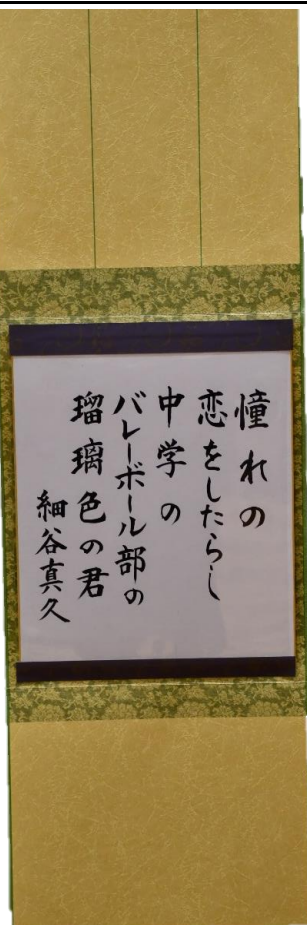 憧れの
恋をしたらし
中学の
バレーボール部の
瑠璃色の君
細谷真久